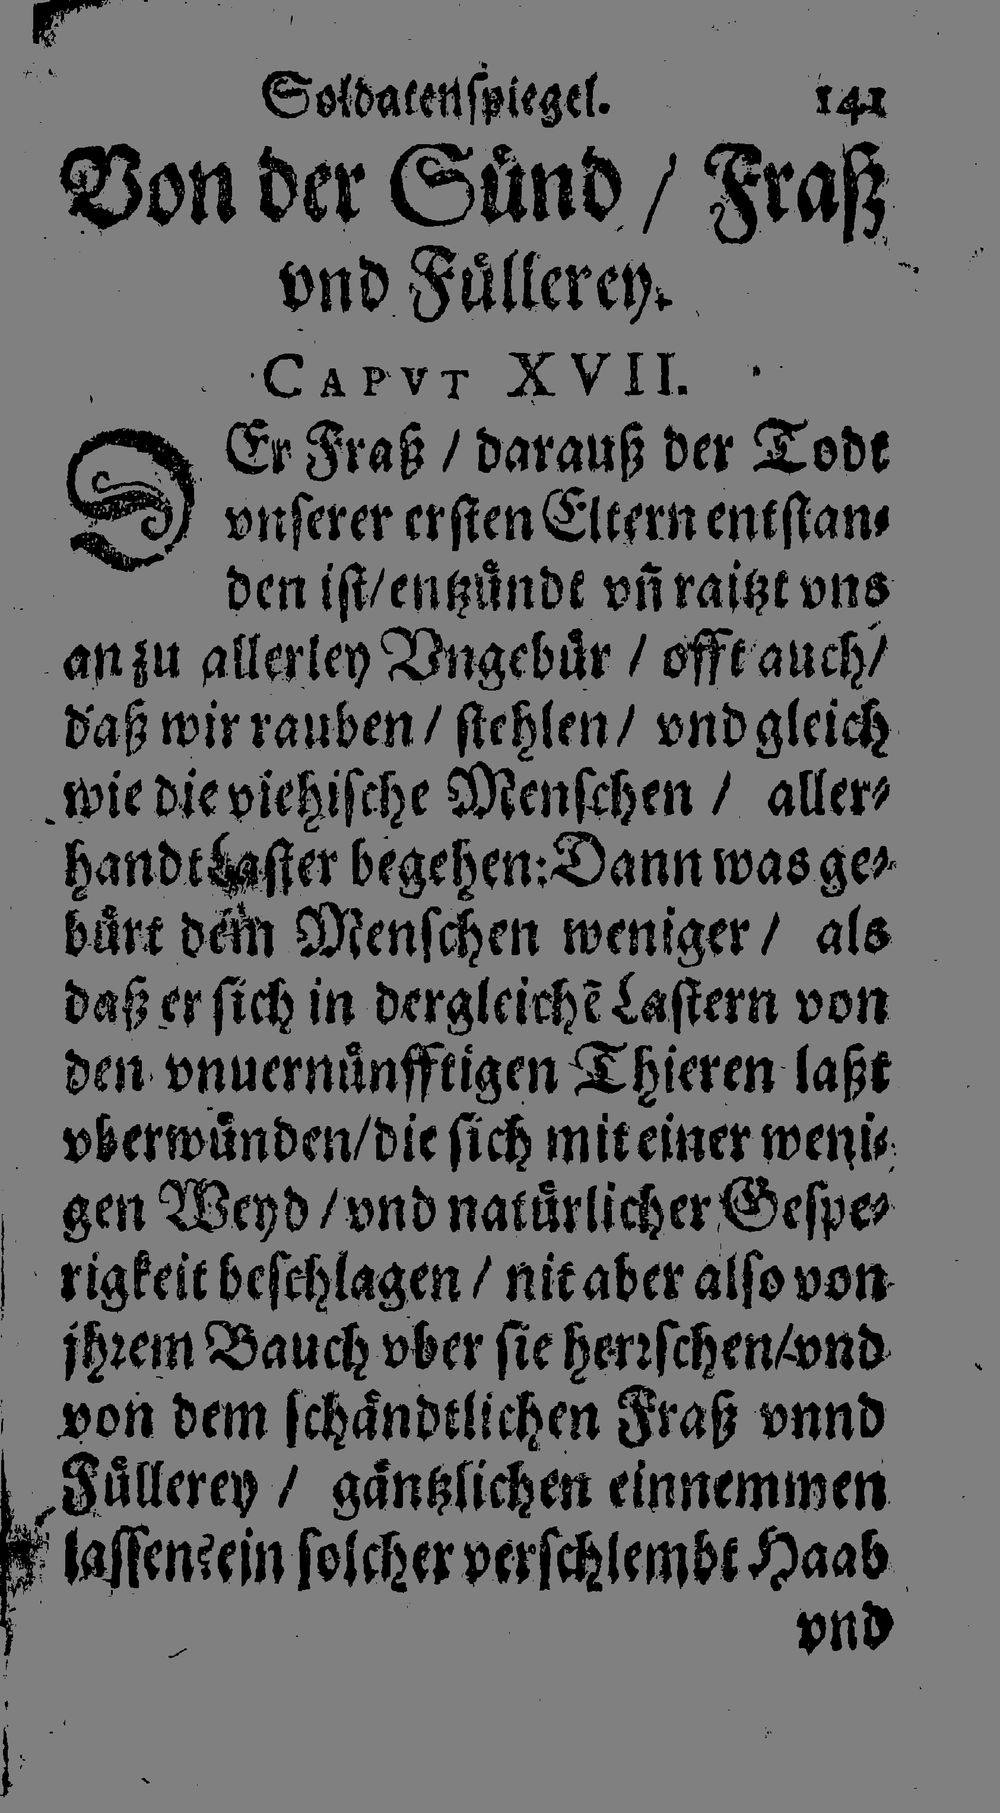 Soldatenspiegel. 141
Von der Sünd / Fraß
vnd Füllerey.
CAPVT XVII.
DEr Fraß / darauß der Todt
vnserer ersten Eltern entstan-
den ist/entzündt vñ raitzt vns
an zu allerley Vngebür / offt auch/
daß wir rauben / stehlen / vnd gleich
wie die viehische Menschen / aller-
handt Laster begehen: Dann was ge-
bürt dem Menschen weniger / als
daß er sich in dergleichẽ Lastern von
den vnuernünfftigen Thieren laßt
vberwünden/die sich mit einer weni-
gen Weyd / vnd natürlicher Gespe-
rigkeit beschlagen / nit aber also von
jhrem Bauch vber sie herrschen/vnd
von dem schändtlichen Fraß vnnd
Füllerey / gäntzlichen einnemmen
lassen? ein solcher verschlembt Haab
vnd